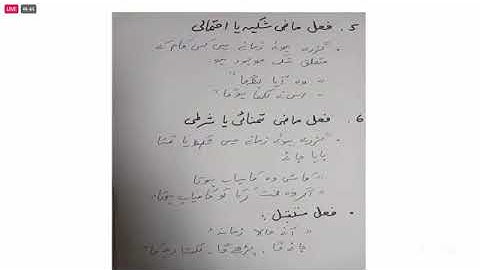 LIVE
5. فعل ماضی شکیہ یا احتمالی
گزرے ہوئے زمانے میں جس کام کے
متعلق شک موجود ہو
وہ آیا ہوگا
اس نے لکھا ہوگا
6. فعل ماضی تمنائی یا شرطی
گزرے ہوئے زمانے میں شرط یا تمنا
پایا جائے
کاش وہ کامیاب ہوتا
اگر وہ محنت کرتا تو کامیاب ہوتا
فعل مستقبل:
آنے والا زمانہ
جائے گا، پڑھے گا، لکھتا رہے گا